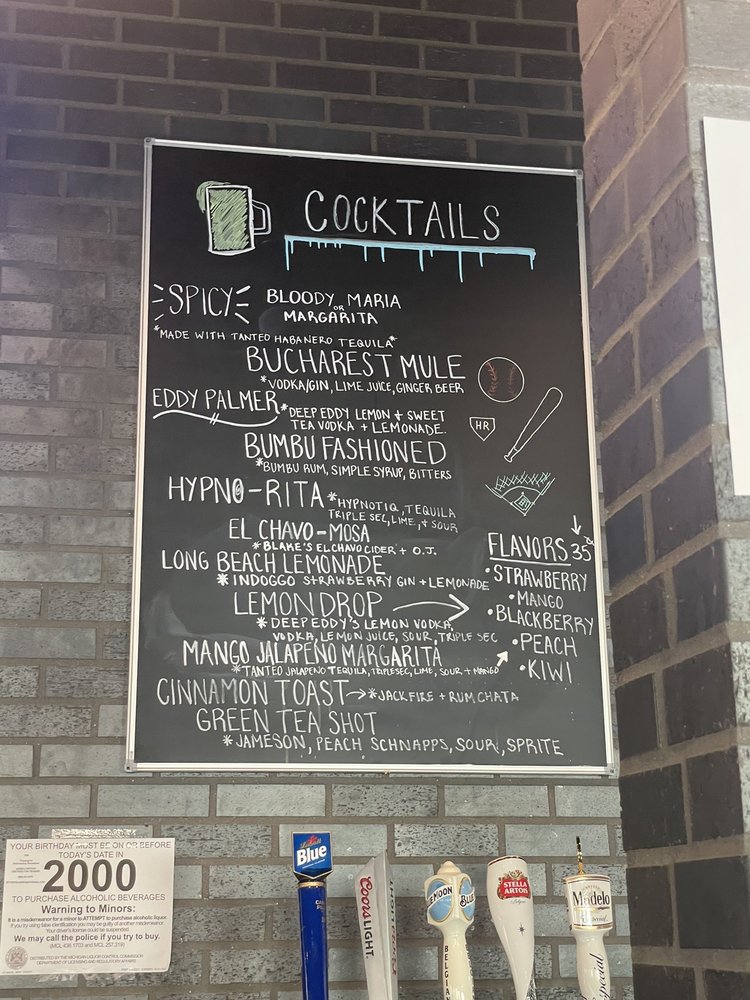 COCKTAILS
SPICY BLOODY MARIA
OR
MARGARITA
*MADE WITH TANTEO HABANERO TEQUILA*
BUCHAREST MULE
*VODKA/GIN, LIME JUICE, GINGER BEER
EDDY PALMER *DEEP EDDY LEMON + SWEET
TEA VODKA + LEMONADE.
BUMBU FASHIONED
*BUMBU RUM, SIMPLE SYRUP, BITTERS
HR
HYPNO-RITA *HYPNOTIQ, TEQUILA
TRIPLE SEC, LIME, + SOUR
EL CHAVO-MOSA
*BLAKE'S EL CHAVO CIDER + O.J.
LONG BEACH LEMONADE
*INDOGGO STRAWBERRY GIN + LEMONADE
LEMON DROP
*DEEP EDDY'S LEMON VODKA,
VODKA, LEMON JUICE, SOUR, TRIPLE SEC
MANGO JALAPEÑO MARGARITA
*TANTEO JALAPEÑO TEQUILA, TRIPLE SEC, LIME, SOUR + MANGO
CINNAMON TOAST → *JACK FIRE + RUMCHATA
GREEN TEA SHOT
*JAMESON, PEACH SCHNAPPS, SOUR, SPRITE
FLAVORS 35
• STRAWBERRY
• MANGO
• BLACKBERRY
• PEACH
• KIWI
YOUR BIRTHDAY MUST BE ON OR BEFORE
TODAY'S DATE IN
2000
TO PURCHASE ALCOHOLIC BEVERAGES
Warning to Minors:
It is a misdemeanor for a minor to ATTEMPT to purchase alcoholic liquor.
If you try using false identification you may be guilty of another misdemeanor.
Your driver's license could be suspended.
We may call the police if you try to buy.
(MCL 436.1703 and MCL 257.319)
DISTRIBUTED BY THE MICHIGAN LIQUOR CONTROL COMMISSION
DEPARTMENT OF LICENSING AND REGULATORY AFFAIRS
Labatt
Blue
Coors
LIGHT
BLUE MOON
BELGIAN
STELLA
ARTOIS
Modelo
Especial